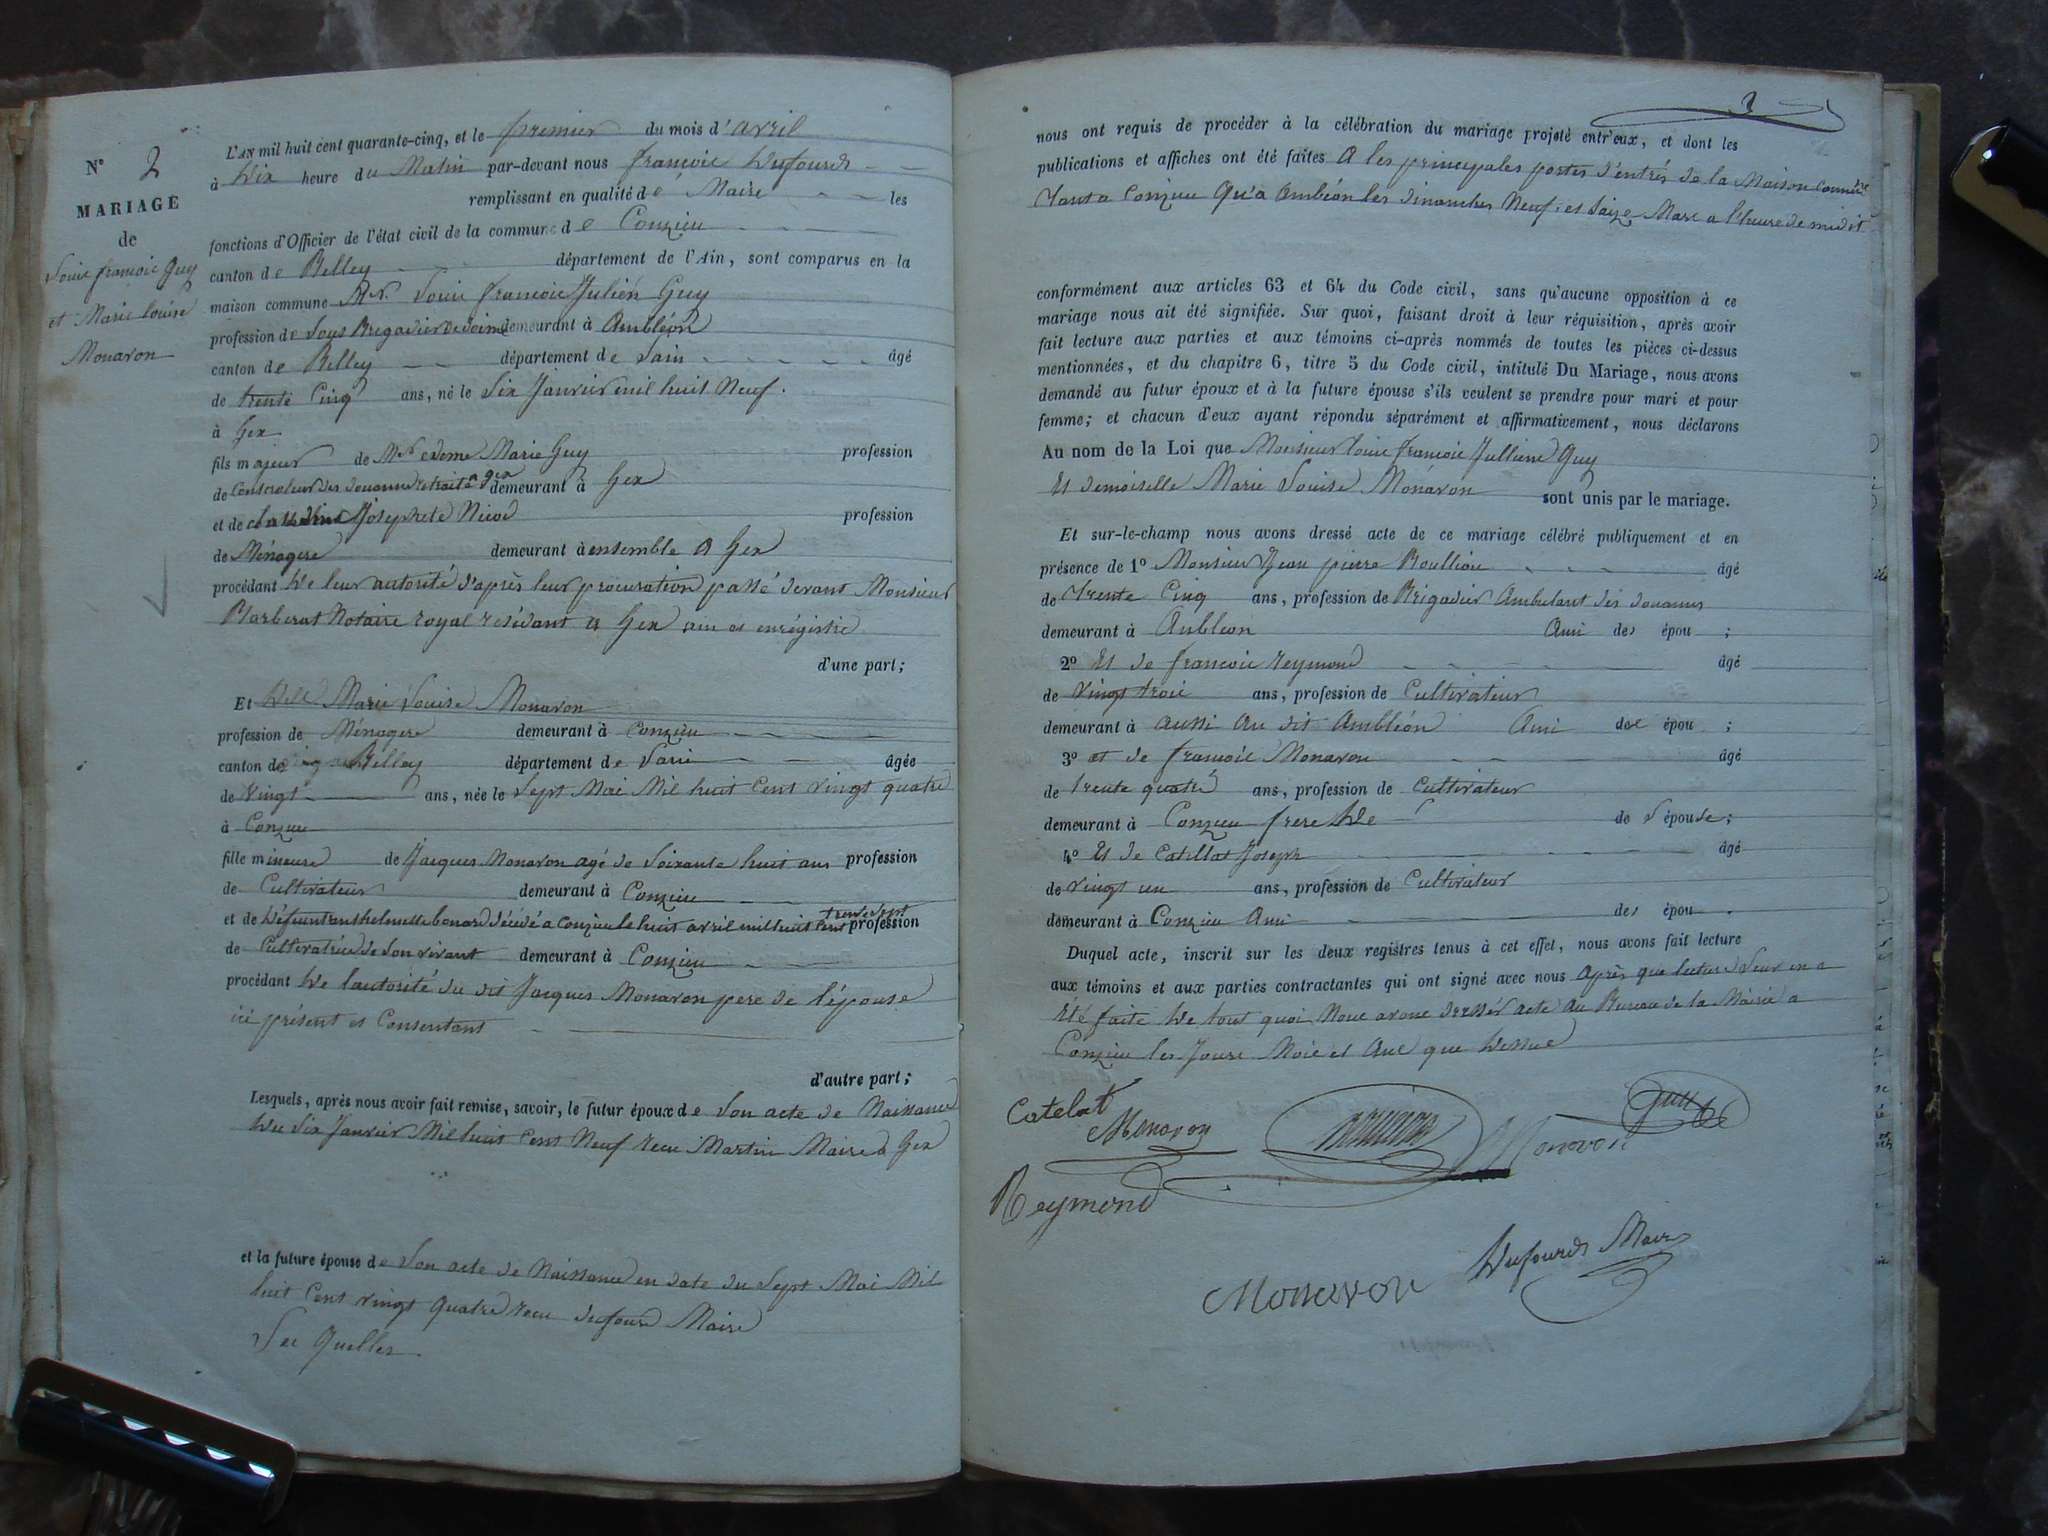 N° 2
MARIAGE
de
Louis françois Guy
et Marie louise
Monavon
L'AN mil huit cent quarante-cinq, et le premier du mois d'avril
à Dix heure du Matin par-devant nous françois Dufourd
remplissant en qualité de Maire les
fonctions d'Officier de l'état civil de la commune de Conzieu
canton de Belley département de l'Ain, sont comparus en la
maison commune Mr. Louis françois Julien Guy
profession de Sous Brigadier demeurant à Ambléon
canton de Belley département de Lain âgé
de trente Cinq ans, né le Six Janvier mil huit Neuf.
à Gex
fils majeur de Mr edeme Marie Guy profession
de Controleur des douanne retraité a gex demeurant à Gex
et de Josephete Nicod profession
de Ménagere demeurant à ensemble a Gex
procédant De leur autorité d'après leur procuration passé devant Monsieur
Barberat Notaire royal residant a Gex ain et enrégistré
d'une part;
Et Delle Marie Louise Monavon
profession de Ménagere demeurant à Conzieu
canton de Belley département de Lain âgée
de Vingt ans, née le Sept Mai Mil huit Cent Vingt quatre
à Conzieu
fille mineure de Jacques Monavon agé de Soixante huit ans profession
de Cultivateur demeurant à Conzieu
et de Défeunte anthelmette bonard décédé a Conzieu le huit avril mil huit Cent trente Sept profession
de Cultivatrice de Son vivant demeurant à Conzieu
procédant De lautorité du dit Jacques Monavon pere de l'épouse
ici présent et Consentant
d'autre part;
Lesquels, après nous avoir fait remise, savoir, le futur époux de Son acte de Naissance
Du Six Janvier Mil huit Cent Neuf recu Martin Maire a Gex
et la future épouse de Son acte de Naissance en date du Sept Mai Mil
huit Cent vingt quatre recu dufourd Maire
Les Quelles
nous ont requis de procéder à la célébration du mariage projeté entr'eux, et dont les
publications et affiches ont été faites A les principales portes d'entrés de la Maison Commune
Tant a Conzieu Qu'a Ambléon les dimanches Neuf et Saize Mars a l'heure de midi
conformément aux articles 63 et 64 du Code civil, sans qu'aucune opposition à ce
mariage nous ait été signifiée. Sur quoi, faisant droit à leur réquisition, après avoir
fait lecture aux parties et aux témoins ci-après nommés de toutes les pièces ci-dessus
mentionnées, et du chapitre 6, titre 5 du Code civil, intitulé Du Mariage, nous avons
demandé au futur époux et à la future épouse s'ils veulent se prendre pour mari et pour
femme; et chacun d'eux ayant répondu séparément et affirmativement, nous déclarons
Au nom de la Loi que Monsieur louis françois Jullien Guy
Et demoiselle Marie Louise Monavon sont unis par le mariage.
Et sur-le-champ nous avons dressé acte de ce mariage célébré publiquement et en
présence de 1° Monsieur Jean pierre Roullion âgé
de Trente Cinq ans, profession de Brigadier Ambulant des douannes
demeurant à Anbleon Ami des épou ;
2° Et de françois reymond âgé
de vingt trois ans, profession de Cultivateur
demeurant à aussi Au dit Ambléon Ami des épou ;
3° et de françois Monavon âgé
de trente quatre ans, profession de Cultivateur
demeurant à Conzieu frere De de l'épouse;
4° Et de Catillat Joseph âgé
de vingt un ans, profession de Cultivateur
demeurant à Conzieu Ami des épou .
Duquel acte, inscrit sur les deux registres tenus à cet effet, nous avons fait lecture
aux témoins et aux parties contractantes qui ont signé avec nous Après que lecture Leur en a
Eté faite De tout quoi Nous avons dressér acte Au Bureau de la Mairie a
Conzieu les Jours Mois et Ans que Dessus
Catelat
Monavon
Monavon
Guy
Reymond
Monavon
Dufourd Maire